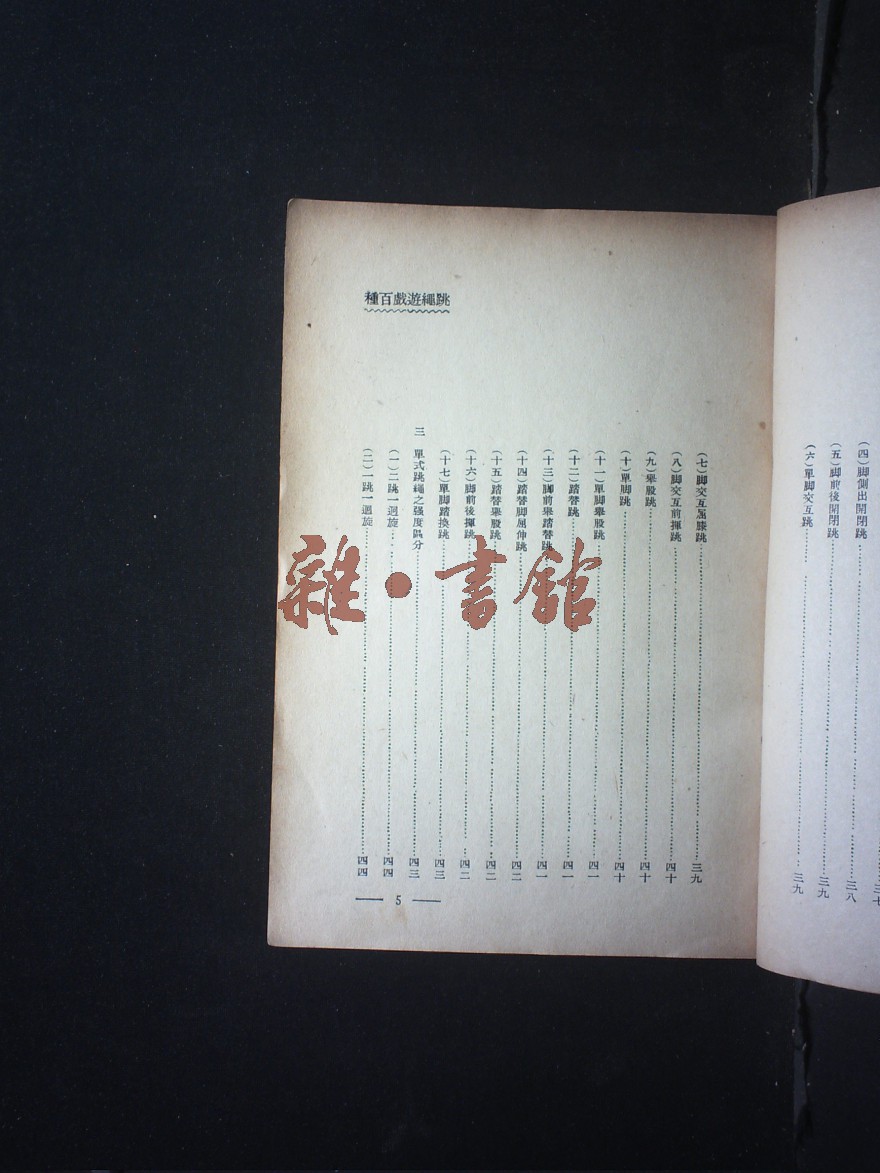 (四)脚側出開閉跳……三八
(五)脚前後開閉跳……三九
(六)單脚交互跳……三九
跳繩遊戲百種
(七)脚交互屈膝跳……三九
(八)脚交互前揮跳……四十
(九)舉股跳……四十
(十)單脚跳……四十
(十一)單脚舉股跳……四一
(十二)踏替跳……四一
(十三)脚前舉踏替跳……四一
(十四)踏替脚屈伸跳……四二
(十五)踏替舉股跳……四二
(十六)脚前後揮跳……四二
(十七)單脚踏換跳……四三
三 單式跳繩之强度區分……四三
(一)二跳一迴旋……四四
(二)一跳一迴旋……四四
— 5 —
雜·書館